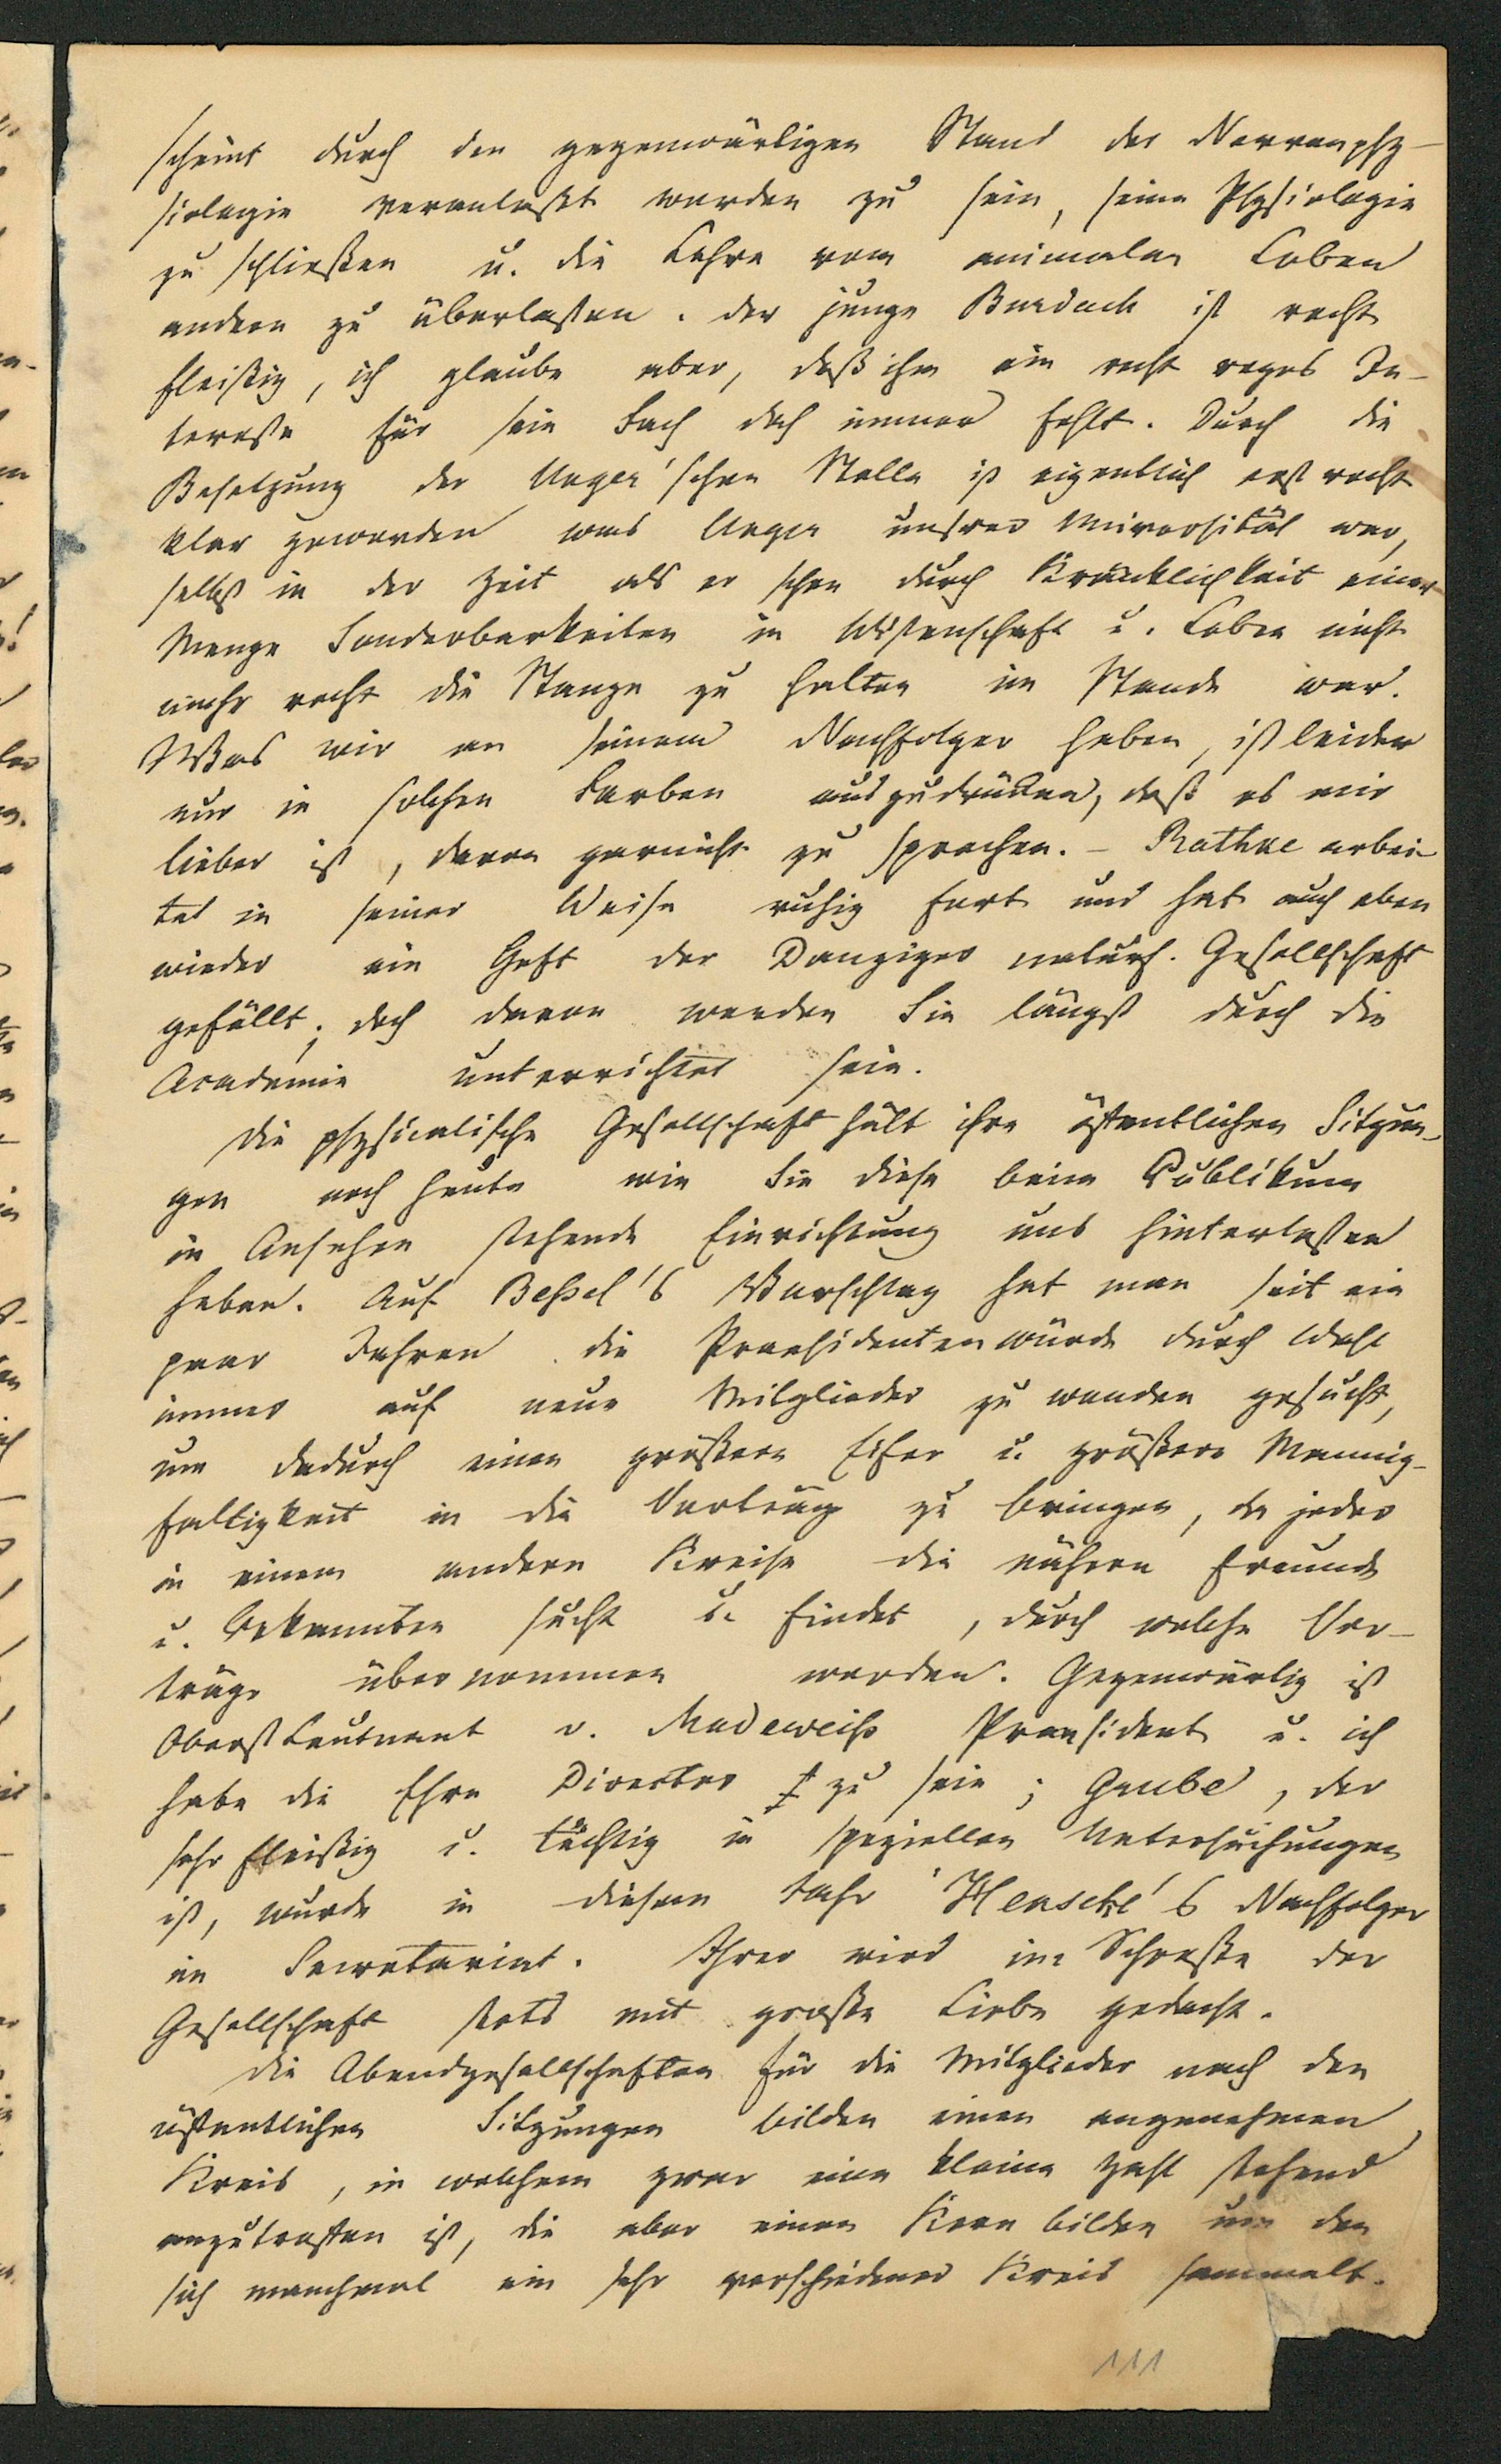 scheint durch den gegenwärtigen Stand der Nervenphy-
siologie veranlaßt worden zu sein, seine Physiologie
zu schließen u. die Lehre vom animalen Leben
andern zu überlaßen. der junge Burdach ist recht
fleißig, ich glaube aber, daß ihm ein recht reges In-
tereße für sein Fach doch immer fehlt. Durch die
Besetzung der Unger'schen Stelle ist eigentlich erst recht
klar geworden was Unger unsrer Universität war,
selbst in der Zeit als er schon durch Kränklichkeit einer
Menge Sonderbarkeiten in Wißenschaft u. Leben nicht
mehr recht die Stange zu halten im Stande war.
Was wir an seinem Nachfolger haben, ist leider
nur in solchen Farben auszudrücken, daß es mir
lieber ist, davon garnicht zu sprechen. – Rathke arbei-
tet in seiner Weise ruhig fort und hat auch eben
wieder ein Heft der Danziger naturf. Gesellschaft
gefüllt; doch davon werden Sie längst durch die
Academie unterrichtet sein.
Die physicalische Gesellschaft hält ihre öffentlichen Sitzun-
gen noch heute wie Sie diese beim Publikum
in Ansehen stehende Einrichtung uns hinterlaßen
haben. Auf Beßel's Vorschlag hat man seit ein
paar Jahren die Praesidentenwürde durch Wahl
immer auf neue Mitglieder zu wenden gesucht,
um dadurch einen größern Eifer u. größere Mannig-
faltigkeit in die Vorträge zu bringen, da jeder
in einem andern Kreise die nähern Freunde
u. Bekannten sucht u. findet, durch welche Vor-
träge übernommen werden. Gegenwärtig ist
Oberstleutnant v. Madeweiß Praesident u. ich
habe die Ehre Director zu sein; Grube, der
sehr fleißig u. tüchtig in speziellen Untersuchungen
ist, wurde in diesem Jahr Hensche's Nachfolger
im Secretariat. Ihrer wird im Schooße der
Gesellschaft stets mit große Liebe gedacht.
Die Abendgesellschaften für die Mitglieder nach den
öffentlichen Sitzungen bilden einen angenehmen
Kreis, in welchem zwar eine kleine Zahl stehend
anzutreffen ist, die aber einen Kern bilden um den
sich manchmal ein sehr verschiedener Kreis sammelt.
111